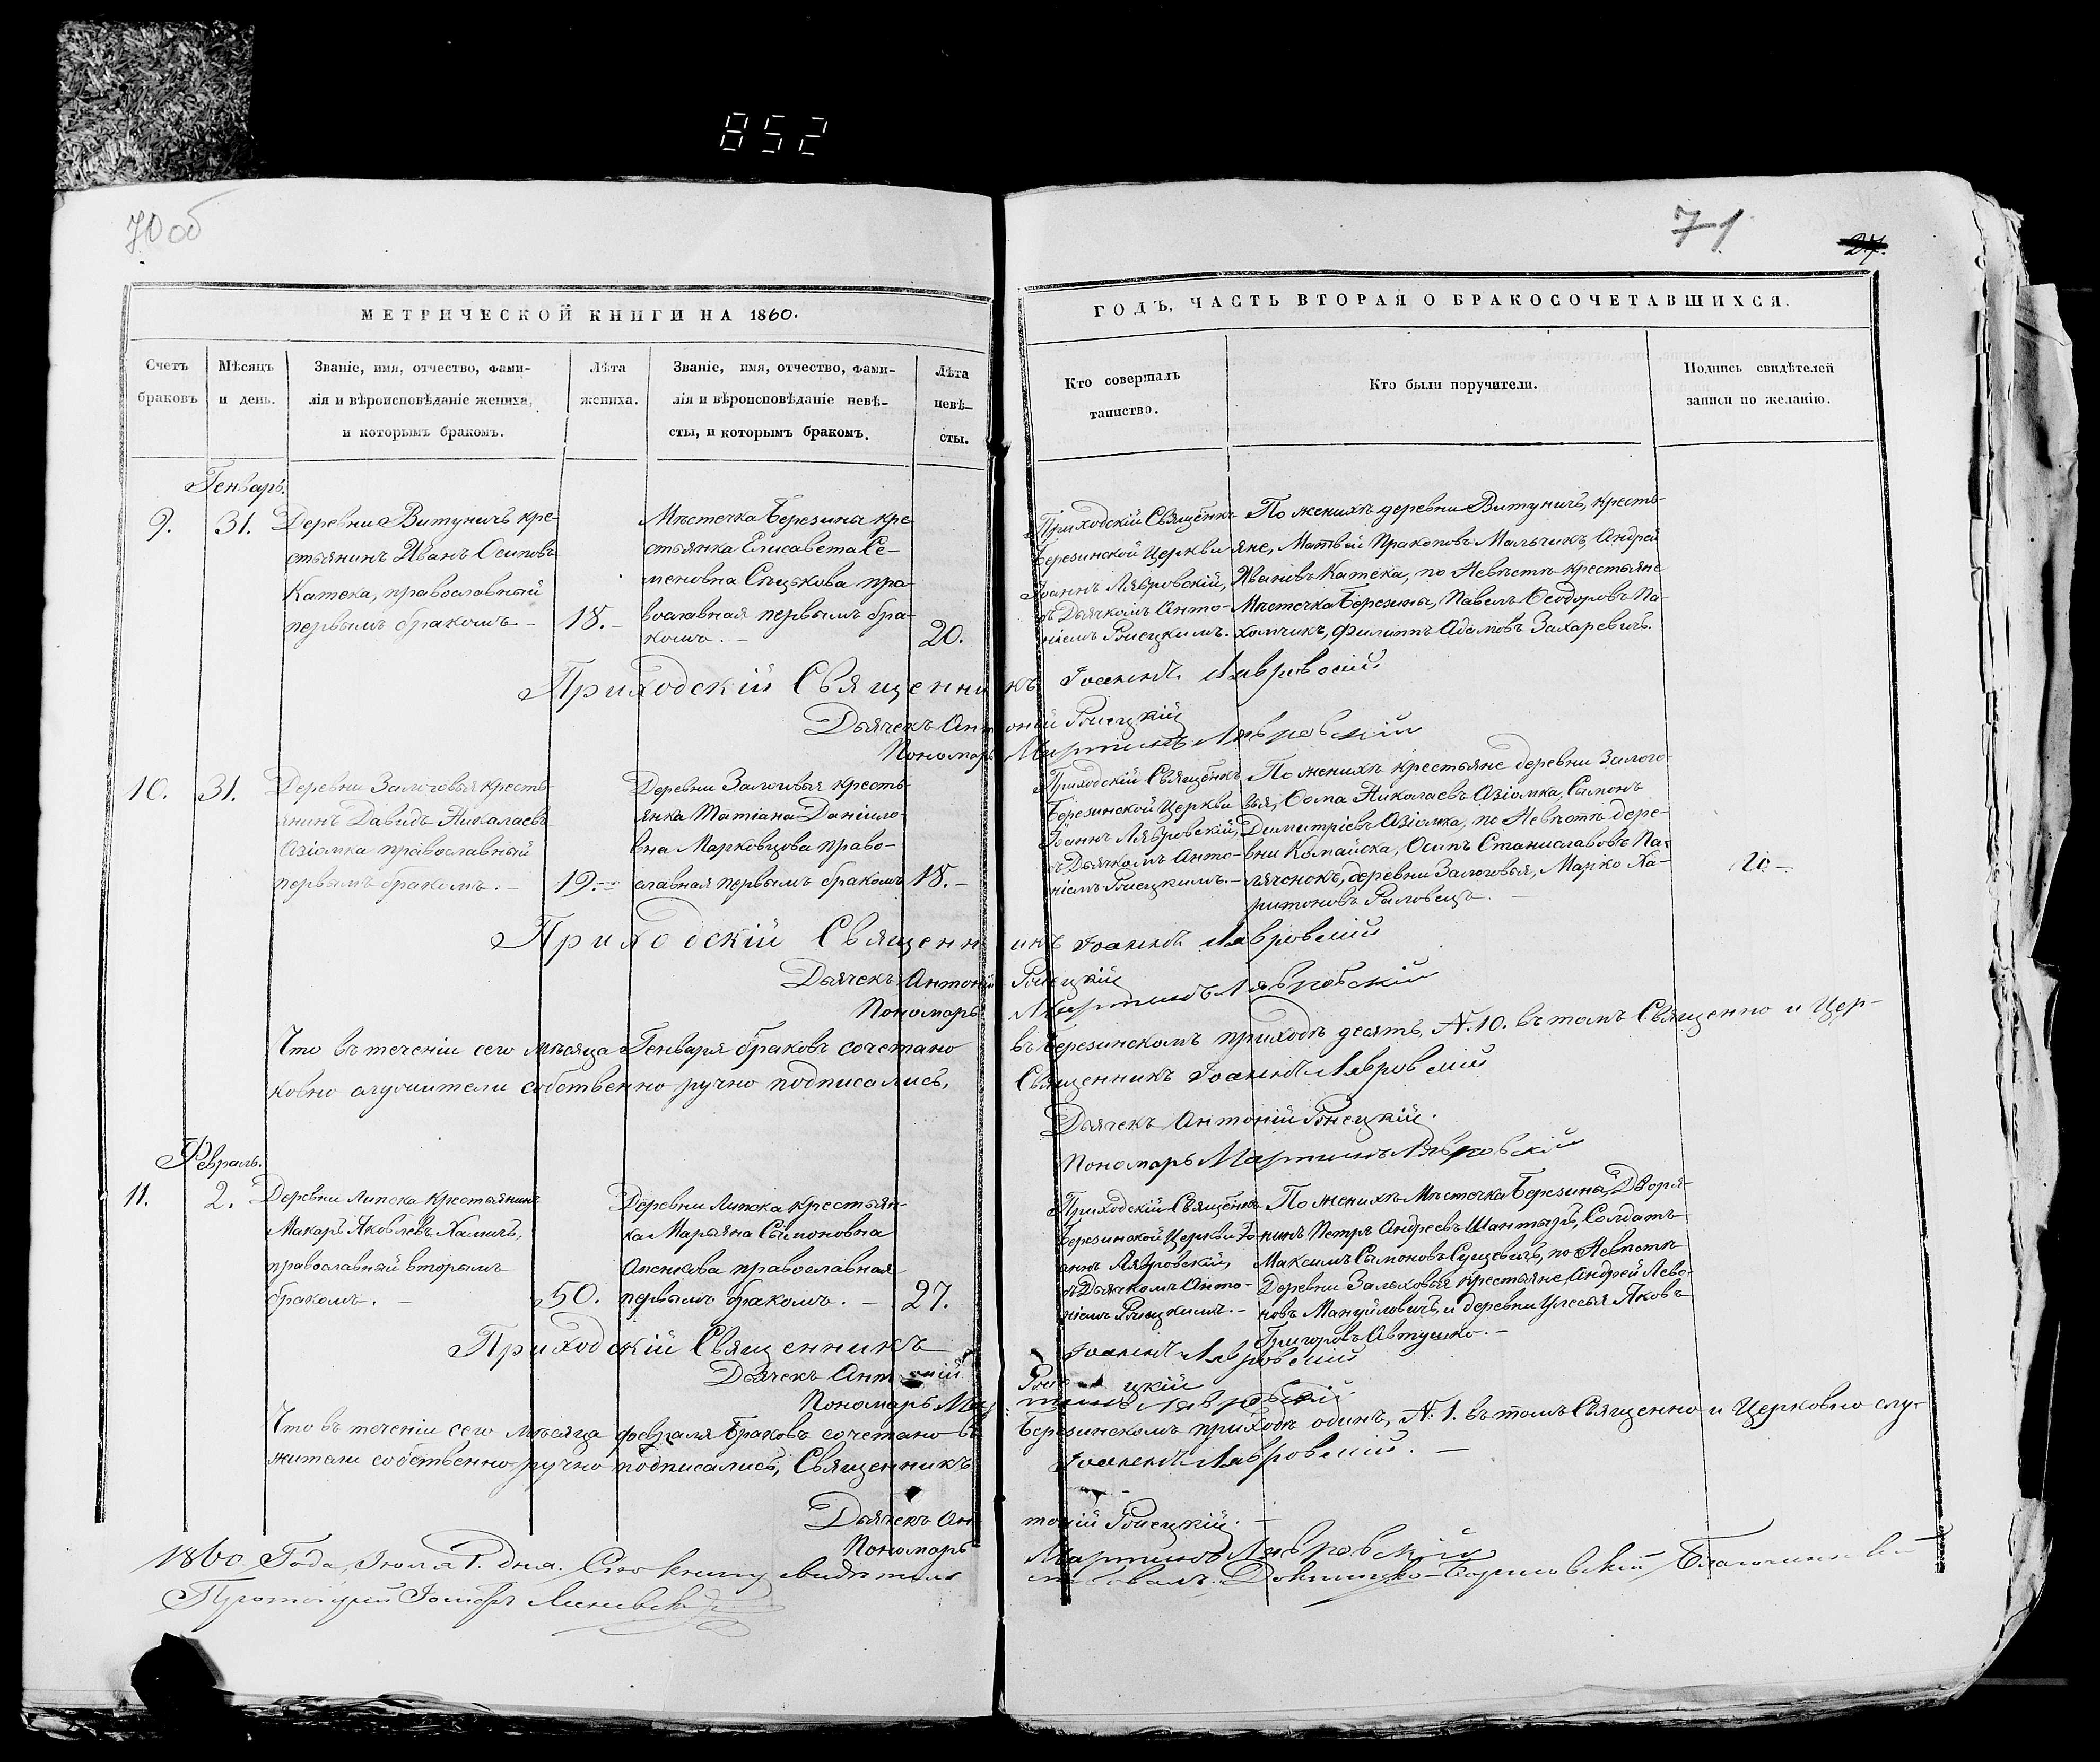 852
70 об
71
27.
МЕТРИЧЕСКОЙ КНИГИ НА 1860.
ГОДЪ, ЧАСТЬ ВТОРАЯ О БРАКОСОЧЕТАВШИХСЯ.
Счетъ
браковъ
Мѣсяцъ
и день.
Званіе, имя, отчество, фами-
лія и вѣроисповѣданіе жениха,
и которымъ бракомъ.
Лѣта
жениха.
Званіе, имя, отчество, фами-
лія и вѣроисповѣданіе невѣ-
сты, и которымъ бракомъ.
Лѣта
невѣ-
сты.
Кто совершалъ
таинство.
Кто были поручители.
Подпись свидѣтелей
записи по желанію.
Генварь.
9.
31.
Деревни Витуничъ кре-
стьянинъ Иванъ Осиповъ
Катека, православный
первымъ бракомъ. -
18. -
Мѣстечка Березина кре-
стьянка Елисавета Се-
меновна Сецкова пра-
вославная первымъ бра-
комъ. -
20.
Приходскій Священникъ
Березинской Церкви
Іоаннъ Лявровскій,
съ Дьячкомъ Анто-
ніемъ Ронецкимъ.
По женихѣ деревни Витуничъ, кресть-
яне, Матвѣй Пракоповъ Мальчикъ, Андрей
Ивановъ Катека, по Невѣстѣ крестьяне
Мѣстечка Березины, Павелъ Ѳеодоровъ Па-
хомчикъ, Филиппъ Адамовъ Захаревичъ.
Приходскій Священникъ Іоаннъ Лявровскій
Дьячекъ Антоній Ронецкій
Пономарь Мартинъ Лявровскій
10.
31.
Деревни Замоговья кресть-
янинъ Давидъ Николаевъ
Азіомка православный
первымъ бракомъ. -
19. -
Деревни Замоговья кресть-
янка Татіана Даніило-
вна Марковцова право-
славная первымъ бракомъ
18. -
Приходскій Священникъ
Березинской Церкви
Іоаннъ Лявровскій,
съ Дьячкомъ Анто-
ніемъ Ронецкимъ. -
По женихѣ крестьяне деревни Замого-
вья, Ѳома Николаевъ Азіомка, Сымонъ
Димитріевъ Азіомка, по Невѣстѣ дере-
вни Комайска, Осипъ Станиславовъ Па-
лячонокъ, деревни Замоговья, Марко Ха-
ритоновъ Рыловецъ. -
Приходскій Священникъ Іоаннъ Лявровскій
Дьячекъ Антоній Ронецкій
Пономарь Мартинъ Лявровскій
Что въ теченіи сего мѣсяца Генваря браковъ сочетано въ Березинскомъ приходѣ десять, N. 10. въ томъ Священно и Цер-
ковно служители собственно ручно подписались, Священникъ Іоаннъ Лявровскій
Дьячекъ Антоній Ронецкій.
Пономарь Мартинъ Лявровскій
Февраль.
11.
2.
Деревни Липска крестьянинъ
Макаръ Яковлевъ Хамичъ,
православный вторымъ
бракомъ. -
50.
Деревни Липска крестьян-
ка Марьяна Сымоновна
Апенкова православная
первымъ бракомъ. -
27.
Приходскій Священникъ
Березинской Церкви Іо-
аннъ Лявровскій,
съ Дьячкомъ Анто-
ніемъ Ронецкимъ. -
По женихѣ Мѣстечка Березина, Дворя-
нинъ Петръ Андреевъ Шантыръ, Солдатъ
Максимъ Сымоновъ Сущевичъ, по Невѣстѣ
Деревни Замховья крестьяне, Андрей Лево-
новъ Мануйловичъ, и деревни Улесья Яковъ
Григоровъ Автушко. -
Приходскій Священникъ Іоаннъ Лявровскій
Дьячекъ Антоній Ронецкій
Пономарь Мартинъ Лявровскій
Что въ теченіи сего мѣсяца февраля браковъ сочетано въ Березинскомъ приходѣ одинъ, N. 1. въ томъ Священно и Церковно слу-
жители собственно ручно подписались, Священникъ Іоаннъ Лявровскій. -
Дьячекъ Антоній Ронецкій. -
Пономарь Мартинъ Лявровскій
1860 Года, Іюля 1. дня. Сію книгу свидѣтельствовалъ Докшицко-Борисовскій Благочинный
Протоіерей